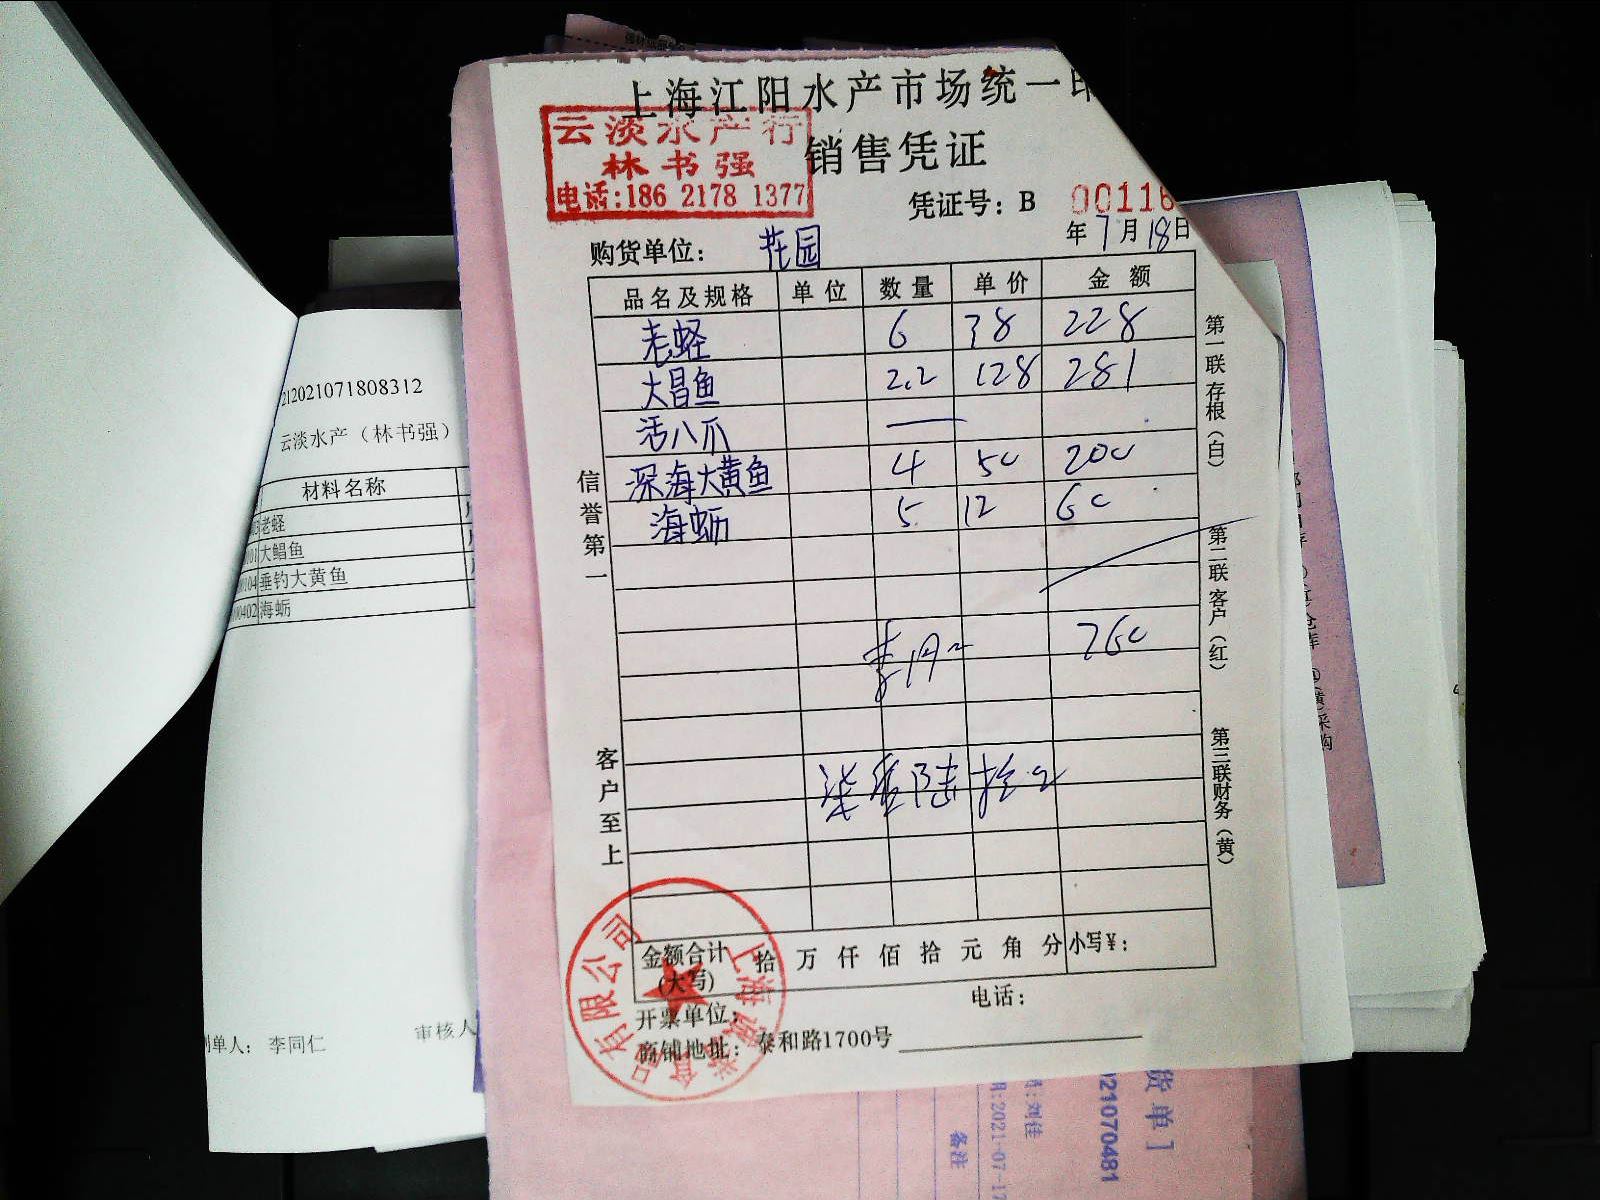 上海江阳水产市场统一印
云淡水产行
林书强
电话:186 2178 1377
销售凭证
凭证号: B 00116
年 7 月 18 日
购货单位: 花园
品名及规格 单位 数量 单价 金额
老蛏 6 38 228
大昌鱼 2.2 128 281
活八爪 —
深海大黄鱼 4 50 200
海蛎 5 12 60
760
柒佰陆拾元
信誉第一
客户至上
第一联存根(白)
第二联客户(红)
第三联财务(黄)
金额合计(大写) 拾 万 仟 佰 拾 元 角 分 小写¥:
开票单位: 电话:
商铺地址: 泰和路1700号
有限公司
212021071808312
云淡水产(林书强)
材料名称
老蛏
大鲳鱼
垂钓大黄鱼
0402 海蛎
制单人: 李同仁
审核人
货单]
021070481
刘佳
:2021-07-17
备注